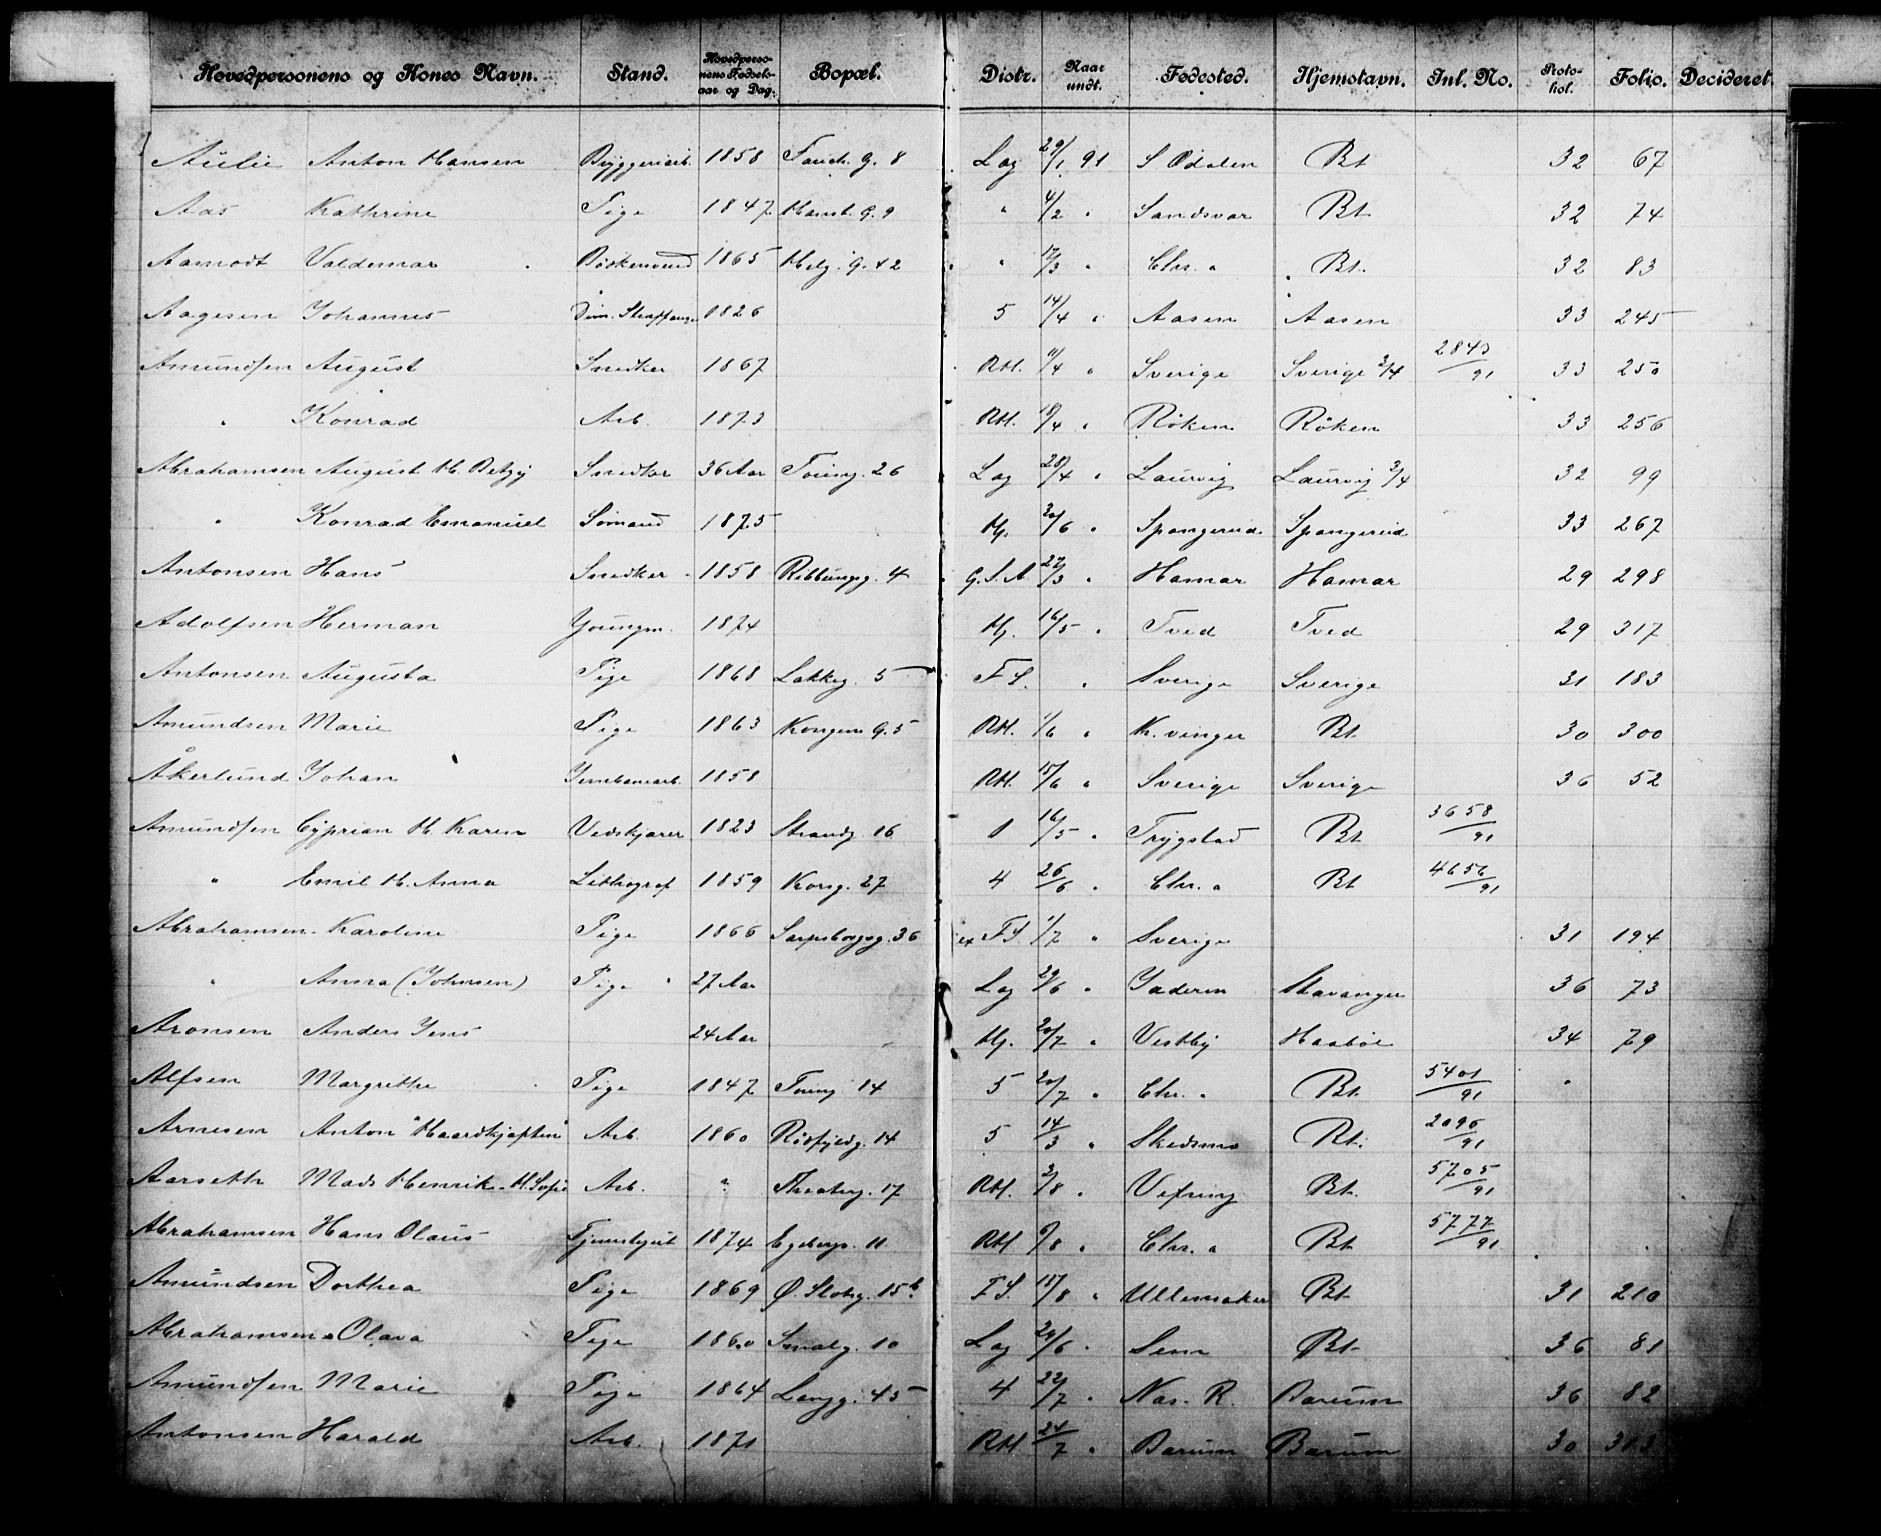 Hovedpersonens og Kones Navn. Stand. Hovedpersonens Fødselsaar og Dag. Bopæl. Distr. Naar undt. Fødested. Hjemstavn. Inl. No. Protokol. Folio. Decideret.
Aulie Anton Hansen Bryggeriarb. 1858 g. 8 Lag 29/1 91 S. Odalen Bt 32 67
Aas Kathrine Pige 1847 g. 9 " 4/2 " Sandsvær Bt 32 74
Aamodt Valdemar Bødkersvend 1865 Helg. g. 42 " 17/3 " Chr. a Bt. 32 83
Aagesen Johannes Dim. Straffange 1826 5 14/4 " Aasen Aasen 33 245
Amundsen August Snedker 1867 RH. 11/4 " Sverige Sverige 3/4 2843/91 33 250
" Konrad Arb. 1873 RH. 18/4 " Røken Røken 33 256
Abrahamsen August H. Betzy Snedker 36 Aar Toing. 26 Lag 28/4 " Laurvig Laurvig 3/4 32 99
" Konrad Emanuel Sømand 1875 Hj. 20/6 " Spangereid Spangereid 33 267
Antonsen Hans Snedker 1858 Ribbungg. 4 G.S.A 27/3 " Hamar Hamar 29 298
Adolfsen Herman Youngm. 1874 Hj. 16/5 " Tved Tved 29 317
Antonsen Augusta Pige 1868 Lakkeg. 5 F.S. " Sverige Sverige 31 183
Amundsen Marie Pige 1863 Kongens G. 5 RH. 1/6 " K. vinger Bt 30 300
Åkerlund Johan Jernbanearb. 1858 RH. 15/6 " Sverige Sverige 36 52
Amundsen Cyprian H. Karen Vedskjærer 1823 Strandg 16 1 16/5 " Trygstad Bt 3658/91
" Emil H. Anna Lithograf 1859 Korsg. 27 4 26/6 " Chr. a Bt 4656/91
Abrahamsen Karoline Pige 1866 Sarpsborgg. 36 F.S. 1/7 " Sverige 31 194
" Anna (Johnsen) Pige 27 Aar Lag 29/6 " Jæderen Stavanger 36 73
Aronsen Anders Jens 24 Aar Hj. 20/7 " Vestby Haabøl 34 79
Alfsen Margrethe Pige 1847 Toing 14 5 20/7 " Chr. a Bt. 5401/91
Arnesen Anton "Haardkjæften" Arb. 1860 Rødfjeldg. 14 5 14/3 " Skedsmo Bt. 2096/91
Aarseth Mads Henrik H. Sofie Arb. " Theaterg. 17 RH. 3/8 " Vefsen Bt. 5705/91
Abrahamsen Hans Olaus Tjenestegut 1874 Egebergs. 11 RH 6/8 " Chr. a Bt 5777/91
Amundsen Dorthea Pige 1869 Ø. Slotsg. 15b F.S. 15/8 " Ullensaker Bt 31 210
Abrahamsen Olava Pige 1860 Smalg. 10 Lag 29/6 " Sem Bt 36 81
Amundsen Marie Pige 1864 Langg. 45 4 22/7 " Næs. R. Bærum 36 82
Antonsen Harald Arb. 1871 RH 24/7 " Bærum Bærum 30 313